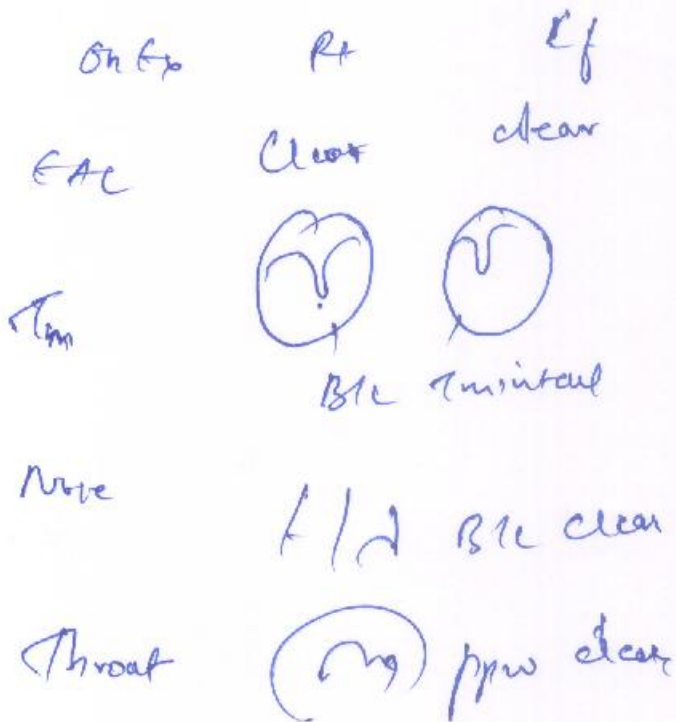 On Ex Rt Lf
EAC Clear clear
Tm
B/L Tm intact
Nose B/L clear
Throat PPW clear